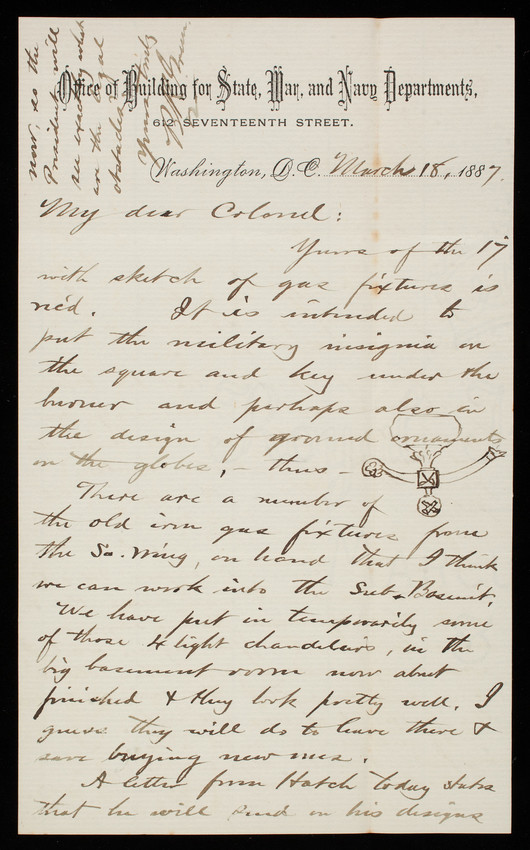 Office of Building for State, War, and Navy Departments,
612 SEVENTEENTH STREET.
Washington, D.C. March 18, 1887.
My dear Colonel:
Yours of the 17
with sketch of gas fixtures is
rec'd. It is intended to
put the military insignia on
the square and key under the
burner and perhaps also in
the design of ground ornaments
on the globes, - thus -
There are a number of
the old iron gas fixtures from
the So. Wing, on hand that I think
we can work into the Sub-Basem't.
We have put in temporarily some
of those 4 light chandeliers, in the
big basement room now about
finished & they look pretty well. I
guess they will do to leave there &
save buying new ones.
A letter from Hatch today states
that he will send on his designs
now, so the
President will
see exactly what
are the
obstacles.
Yours truly